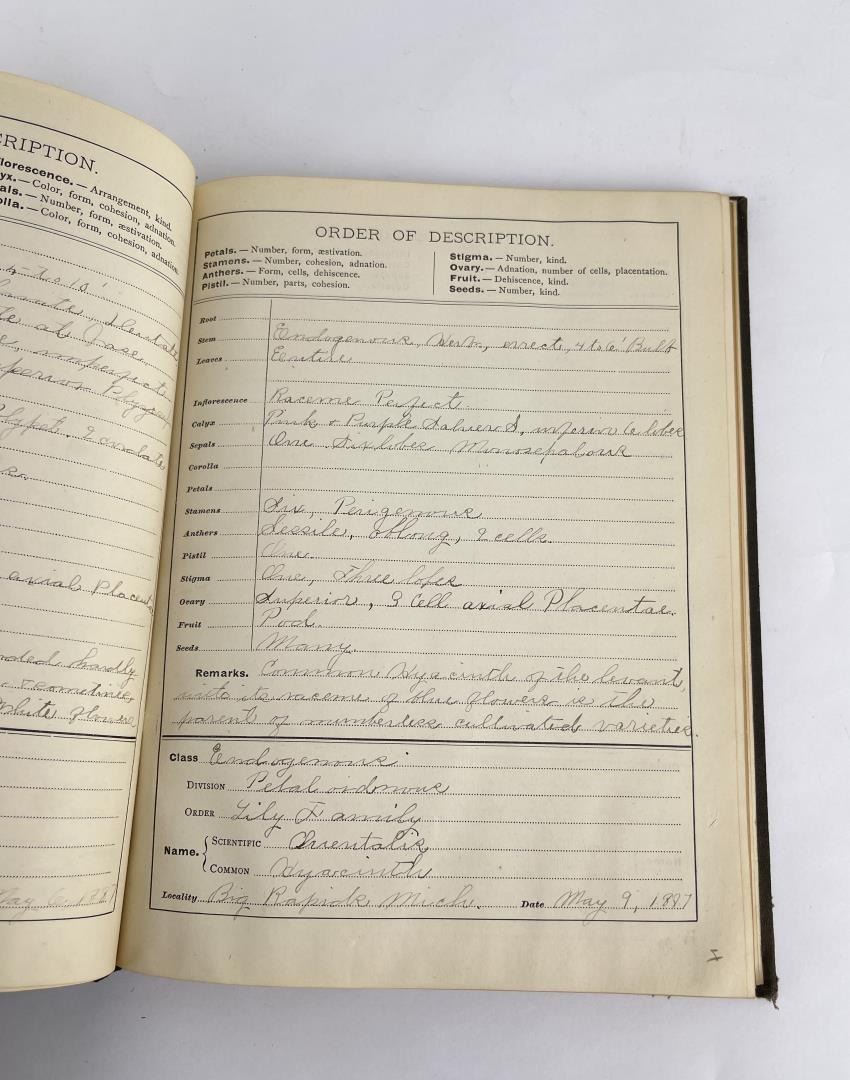 CRIPTION.
florescence. — Arrangement, kind.
yx. — Color, form, cohesion, adnation.
als. — Number, form, æstivation.
olla. — Color, form, cohesion, adnation.
axial Placent
hardly
sometimes
White flowers
May 6, 1887
ORDER OF DESCRIPTION.
Petals. — Number, form, æstivation.
Stamens. — Number, cohesion, adnation.
Anthers. — Form, cells, dehiscence.
Pistil. — Number, parts, cohesion.
Stigma. — Number, kind.
Ovary. — Adnation, number of cells, placentation.
Fruit. — Dehiscence, kind.
Seeds. — Number, kind.
Root
Stem Endogenous, Herb, erect, 4 to 6' Bulb
Leaves Entire
Inflorescence Raceme Perfect
Calyx Pink & Purple inferior 6 lobes
Sepals One Six lobes Monosepalous
Corolla
Petals
Stamens Six, Perigenous
Anthers Sessile, Oblong, 2 cells.
Pistil One.
Stigma One, Three lobes
Ovary Superior, 3 Cell axial Placentae.
Fruit Pod.
Seeds Many.
Remarks. Common Hyacinth of the levant,
with its raceme of blue flowers is the
parent of numberless cultivated varieties.
Class Endogenous.
DIVISION Petaloidonous
ORDER Lily Family
Name. SCIENTIFIC Orientalis
COMMON Hyacinth
Locality Big Rapids Mich. Date May 9, 1887